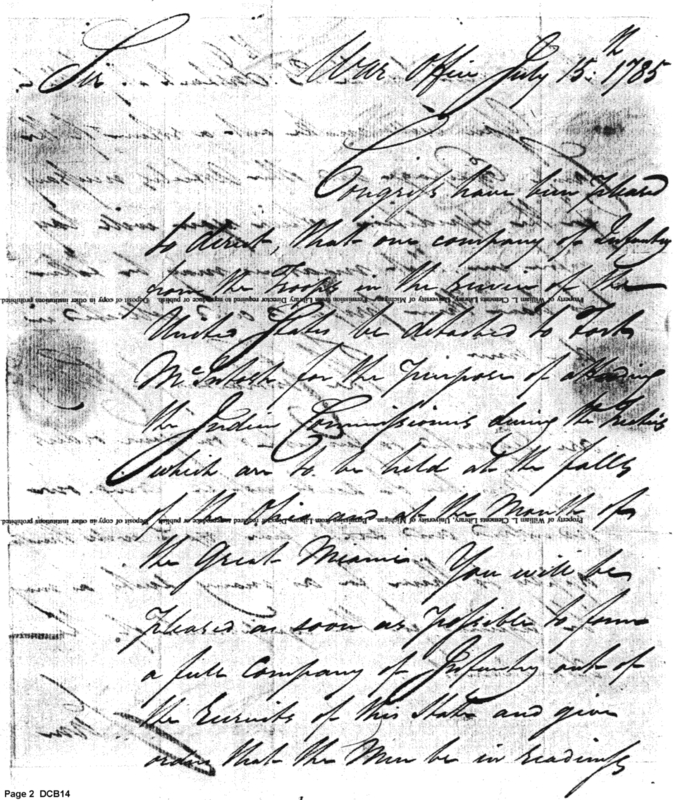 Sir War Office July 15th 1785
Congress have been pleased
to direct, that one company of Infantry
from the Troops in the service of the
Property of William L. Clements Library, University of Michigan. Permission from Library Director required to reproduce or publish. Deposit of copy in other institutions prohibited.
United States be detached to Fort
McIntosh for the purpose of attending
the Indian Commissioners during the Treaties
which are to be held at the falls
of the Ohio and at the Mouth of
Property of William L. Clements Library, University of Michigan. Permission from Library Director required to reproduce or publish. Deposit of copy in other institutions prohibited.
the Great Meami. You will be
pleased as soon as possible to form
a full company of Infantry out of
the Recruits of this State and give
orders that the Men be in readiness
Page 2 DCB14